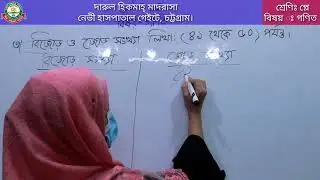 দারুল হিকমাহ্ মাদরাসা
নেভী হাসপাতাল গেইটে, চট্টগ্রাম।
শ্রেণিঃ প্লে
বিষয় ঃ গণিত
বিজোড় ও জোড় সংখ্যা লিখা: (৪১ থেকে ৫০) পর্যন্ত।
বিজোড় সংখ্যা